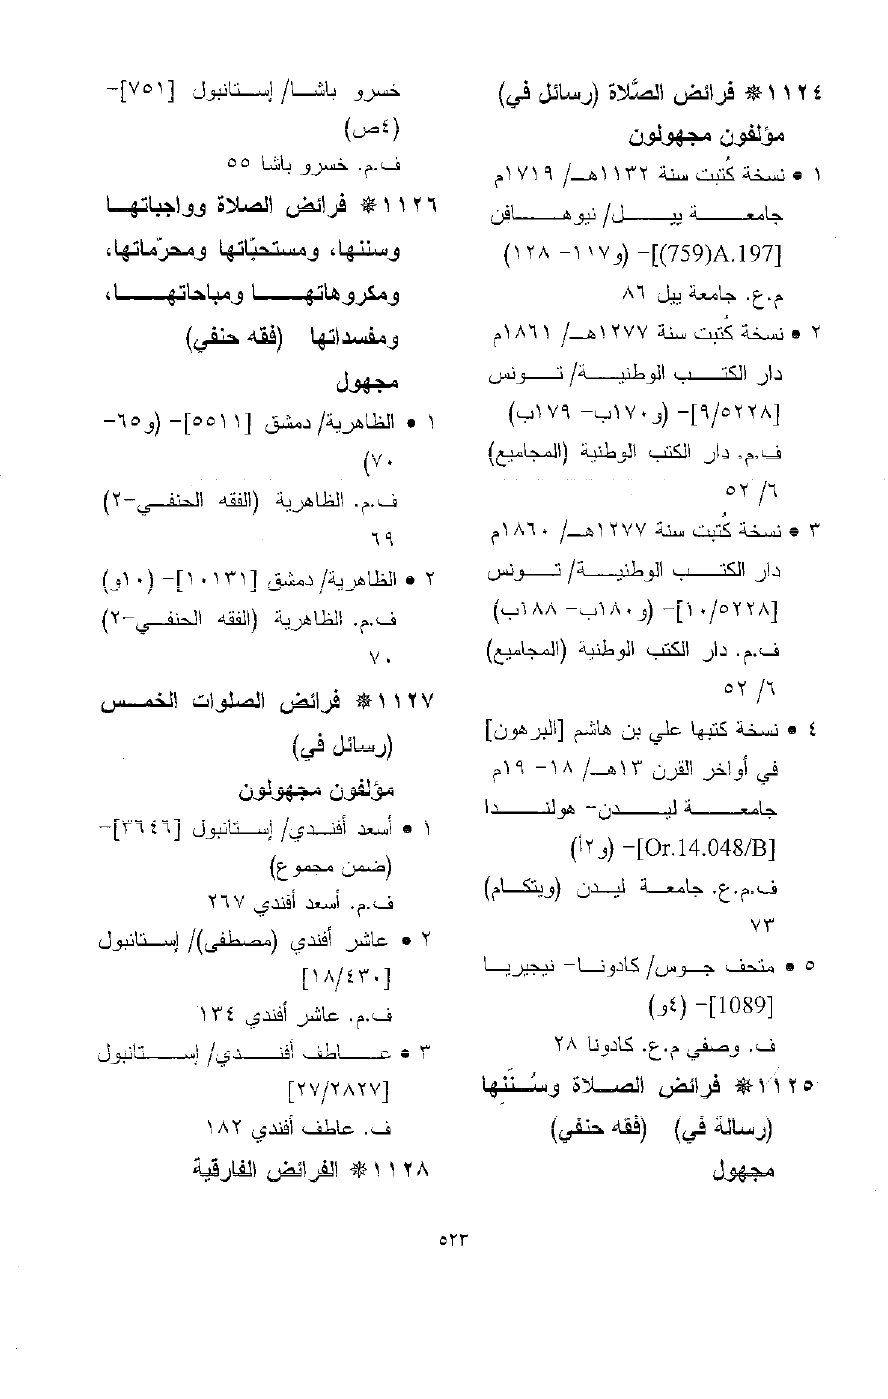 ١١٢٤ ❋ فرائض الصَّلاة (رسائل في)
مؤلفون مجهولون
١ • نسخة كُتبت سنة ١١٣٢هـ/ ١٧١٩م
جامعة ييل/ نيوهافن
[A.197(759)]- (و١١٧- ١٢٨)
م.ع. جامعة ييل ٨٦
٢ • نسخة كُتبت سنة ١٢٧٧هـ/ ١٨٦١م
دار الكتب الوطنية/ تونس
[٩/٥٢٢٨]- (و١٧٠ب- ١٧٩ب)
ف.م. دار الكتب الوطنية (المجاميع)
٦/ ٥٢
٣ • نسخة كُتبت سنة ١٢٧٧هـ/ ١٨٦٠م
دار الكتب الوطنية/ تونس
[١٠/٥٢٢٨]- (و١٨٠ب- ١٨٨ب)
ف.م. دار الكتب الوطنية (المجاميع)
٦/ ٥٢
٤ • نسخة كتبها علي بن هاشم [البرهون]
في أواخر القرن ١٣هـ/ ١٨- ١٩م
جامعة ليدن- هولندا
[Or.14.048/B]- (و٢أ)
ف.م.ع. جامعة ليدن (ويتكام)
٧٣
٥ • متحف جوس/ كادونا- نيجيريا
[1089]- (٤و)
ف. وصفي م.ع. كادونا ٢٨
١١٢٥ ❋ فرائض الصلاة وسُنَنها
(رسالة في) (فقه حنفي)
مجهول
خسرو باشا/ إستانبول [٧٥١]-
(٤ص)
ف.م. خسرو باشا ٥٥
١١٢٦ ❋ فرائض الصلاة وواجباتها
وسننها، ومستحبّاتها ومحرّماتها،
ومكروهاتها ومباحاتها،
ومفسداتها (فقه حنفي)
مجهول
١ • الظاهرية/ دمشق [٥٥١١]- (و٦٥-
٧٠)
ف.م. الظاهرية (الفقه الحنفي-٢)
٦٩
٢ • الظاهرية/ دمشق [١٠١٣١]- (١٠و)
ف.م. الظاهرية (الفقه الحنفي-٢)
٧٠
١١٢٧ ❋ فرائض الصلوات الخمس
(رسائل في)
مؤلفون مجهولون
١ • أسعد أفندي/ إستانبول [٣٦٤٦]-
(ضمن مجموع)
ف.م. أسعد أفندي ٢٦٧
٢ • عاشر أفندي (مصطفى)/ إستانبول
[١٨/٤٣٠]
ف.م. عاشر أفندي ١٣٤
٣ • عاطف أفندي/ إستانبول
[٢٧/٢٨٢٧]
ف. عاطف أفندي ١٨٢
١١٢٨ ❋ الفرائض الفارقية
٥٢٣